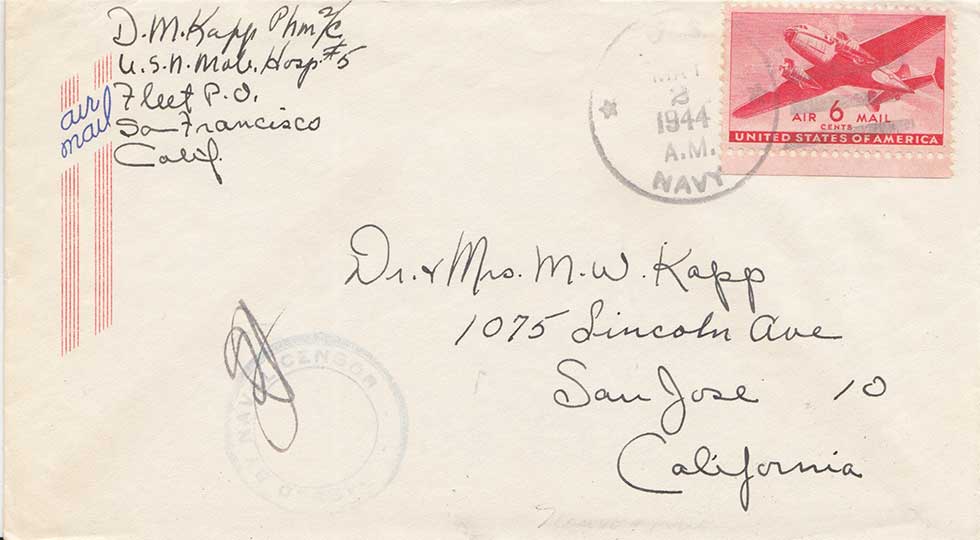 D. M. Kapp Phm 2/c
U.S.N. Mob. Hosp. #5
Fleet P.O.
San Francisco
Calif.
air
mail
MAY
2
1944
A.M.
NAVY
AIR 6 MAIL
CENTS
UNITED STATES OF AMERICA
Dr. & Mrs. M. W. Kapp
1075 Lincoln Ave
San Jose 10
California
BY NAVAL CENSOR